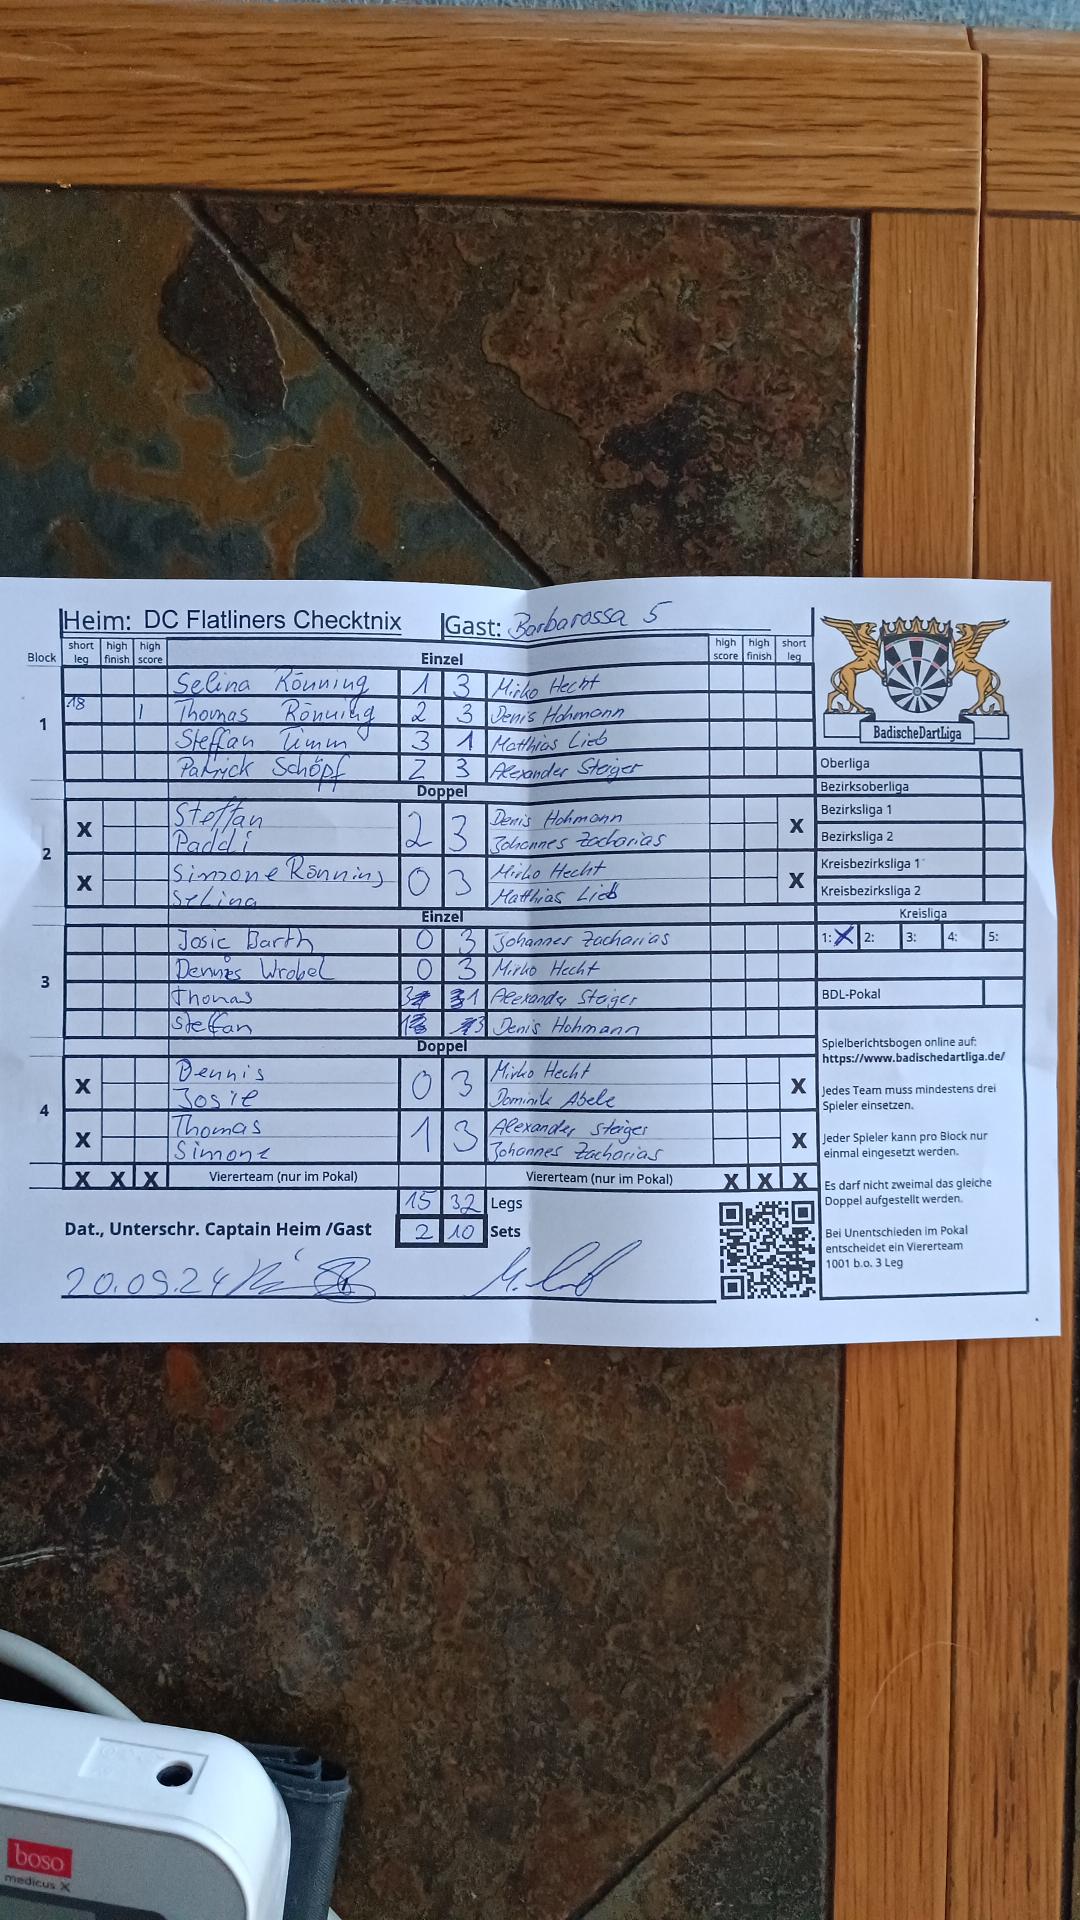 Heim: DC Flatliners Checktnix Gast: Barbarossa 5
Block short leg high finish high score Einzel high score high finish short leg
1
Selina Rönning 1 3 Mirko Hecht
18 1 Thomas Rönning 2 3 Denis Hohmann
Steffan Timm 3 1 Matthias Lieb
Patrick Schöpf 2 3 Alexander Steiger
Doppel
2
X Steffan 2 3 Denis Hohmann X
Paddi Johannes Zacharias
X Simone Rönning 0 3 Mirko Hecht X
Selina Matthias Lieb
Einzel
3
Josie Barth 0 3 Johannes Zacharias
Dennis Wrobel 0 3 Mirko Hecht
Thomas 3 1 Alexander Steiger
Steffan 1 3 Denis Hohmann
Doppel
4
X Dennis 0 3 Mirko Hecht X
Josie Dominik Abele
X Thomas 1 3 Alexander Steiger X
Simone Johannes Zacharias
X X X Viererteam (nur im Pokal) Viererteam (nur im Pokal) X X X
15 32 Legs
Dat., Unterschr. Captain Heim /Gast 2 10 Sets
20.09.24
BadischeDartLiga
Oberliga
Bezirksoberliga
Bezirksliga 1
Bezirksliga 2
Kreisbezirksliga 1
Kreisbezirksliga 2
Kreisliga
1: X 2: 3: 4: 5:
BDL-Pokal
Spielberichtsbogen online auf:
https://www.badischedartliga.de/
Jedes Team muss mindestens drei
Spieler einsetzen.
Jeder Spieler kann pro Block nur
einmal eingesetzt werden.
Es darf nicht zweimal das gleiche
Doppel aufgestellt werden.
Bei Unentschieden im Pokal
entscheidet ein Viererteam
1001 b.o. 3 Leg
boso
medicus X